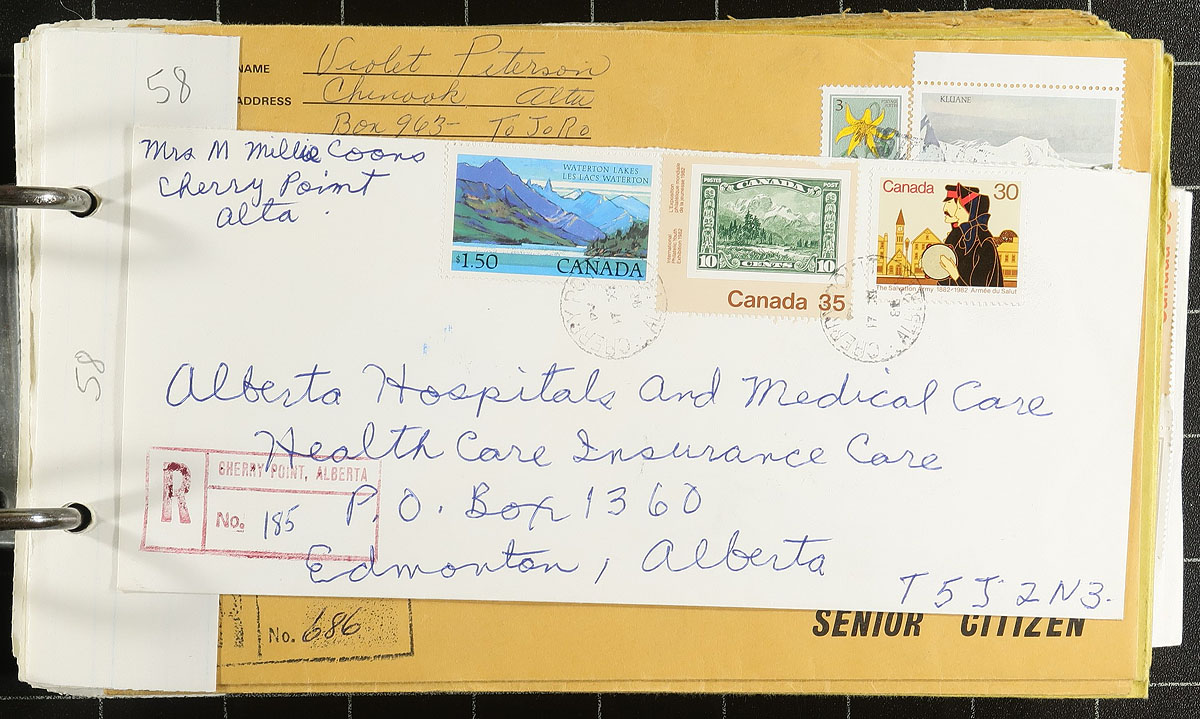 58
NAME Violet Piterson
ADDRESS Chinook Alta
Box 963- T0J0R0
3
KLUANE
Mrs M Millie Coons
Cherry Point
Alta.
WATERTON LAKES
LES LACS WATERTON
$1.50 CANADA
International
Philatelic Youth
Exhibition 1982
L'Exposition
philatélique mondiale
de la jeunesse 1982
POSTES CANADA POST
10 CENTS 10
Canada 35
Canada 30
The Salvation Army 1882-1982 Armée du Salut
58
Alberta Hospitals And Medical Care
Health Care Insurance Care
P.O. Box 1360
Edmonton, Alberta
T5J 2N3.
R CHERRY POINT, ALBERTA
No. 185
No. 686
SENIOR CITIZEN